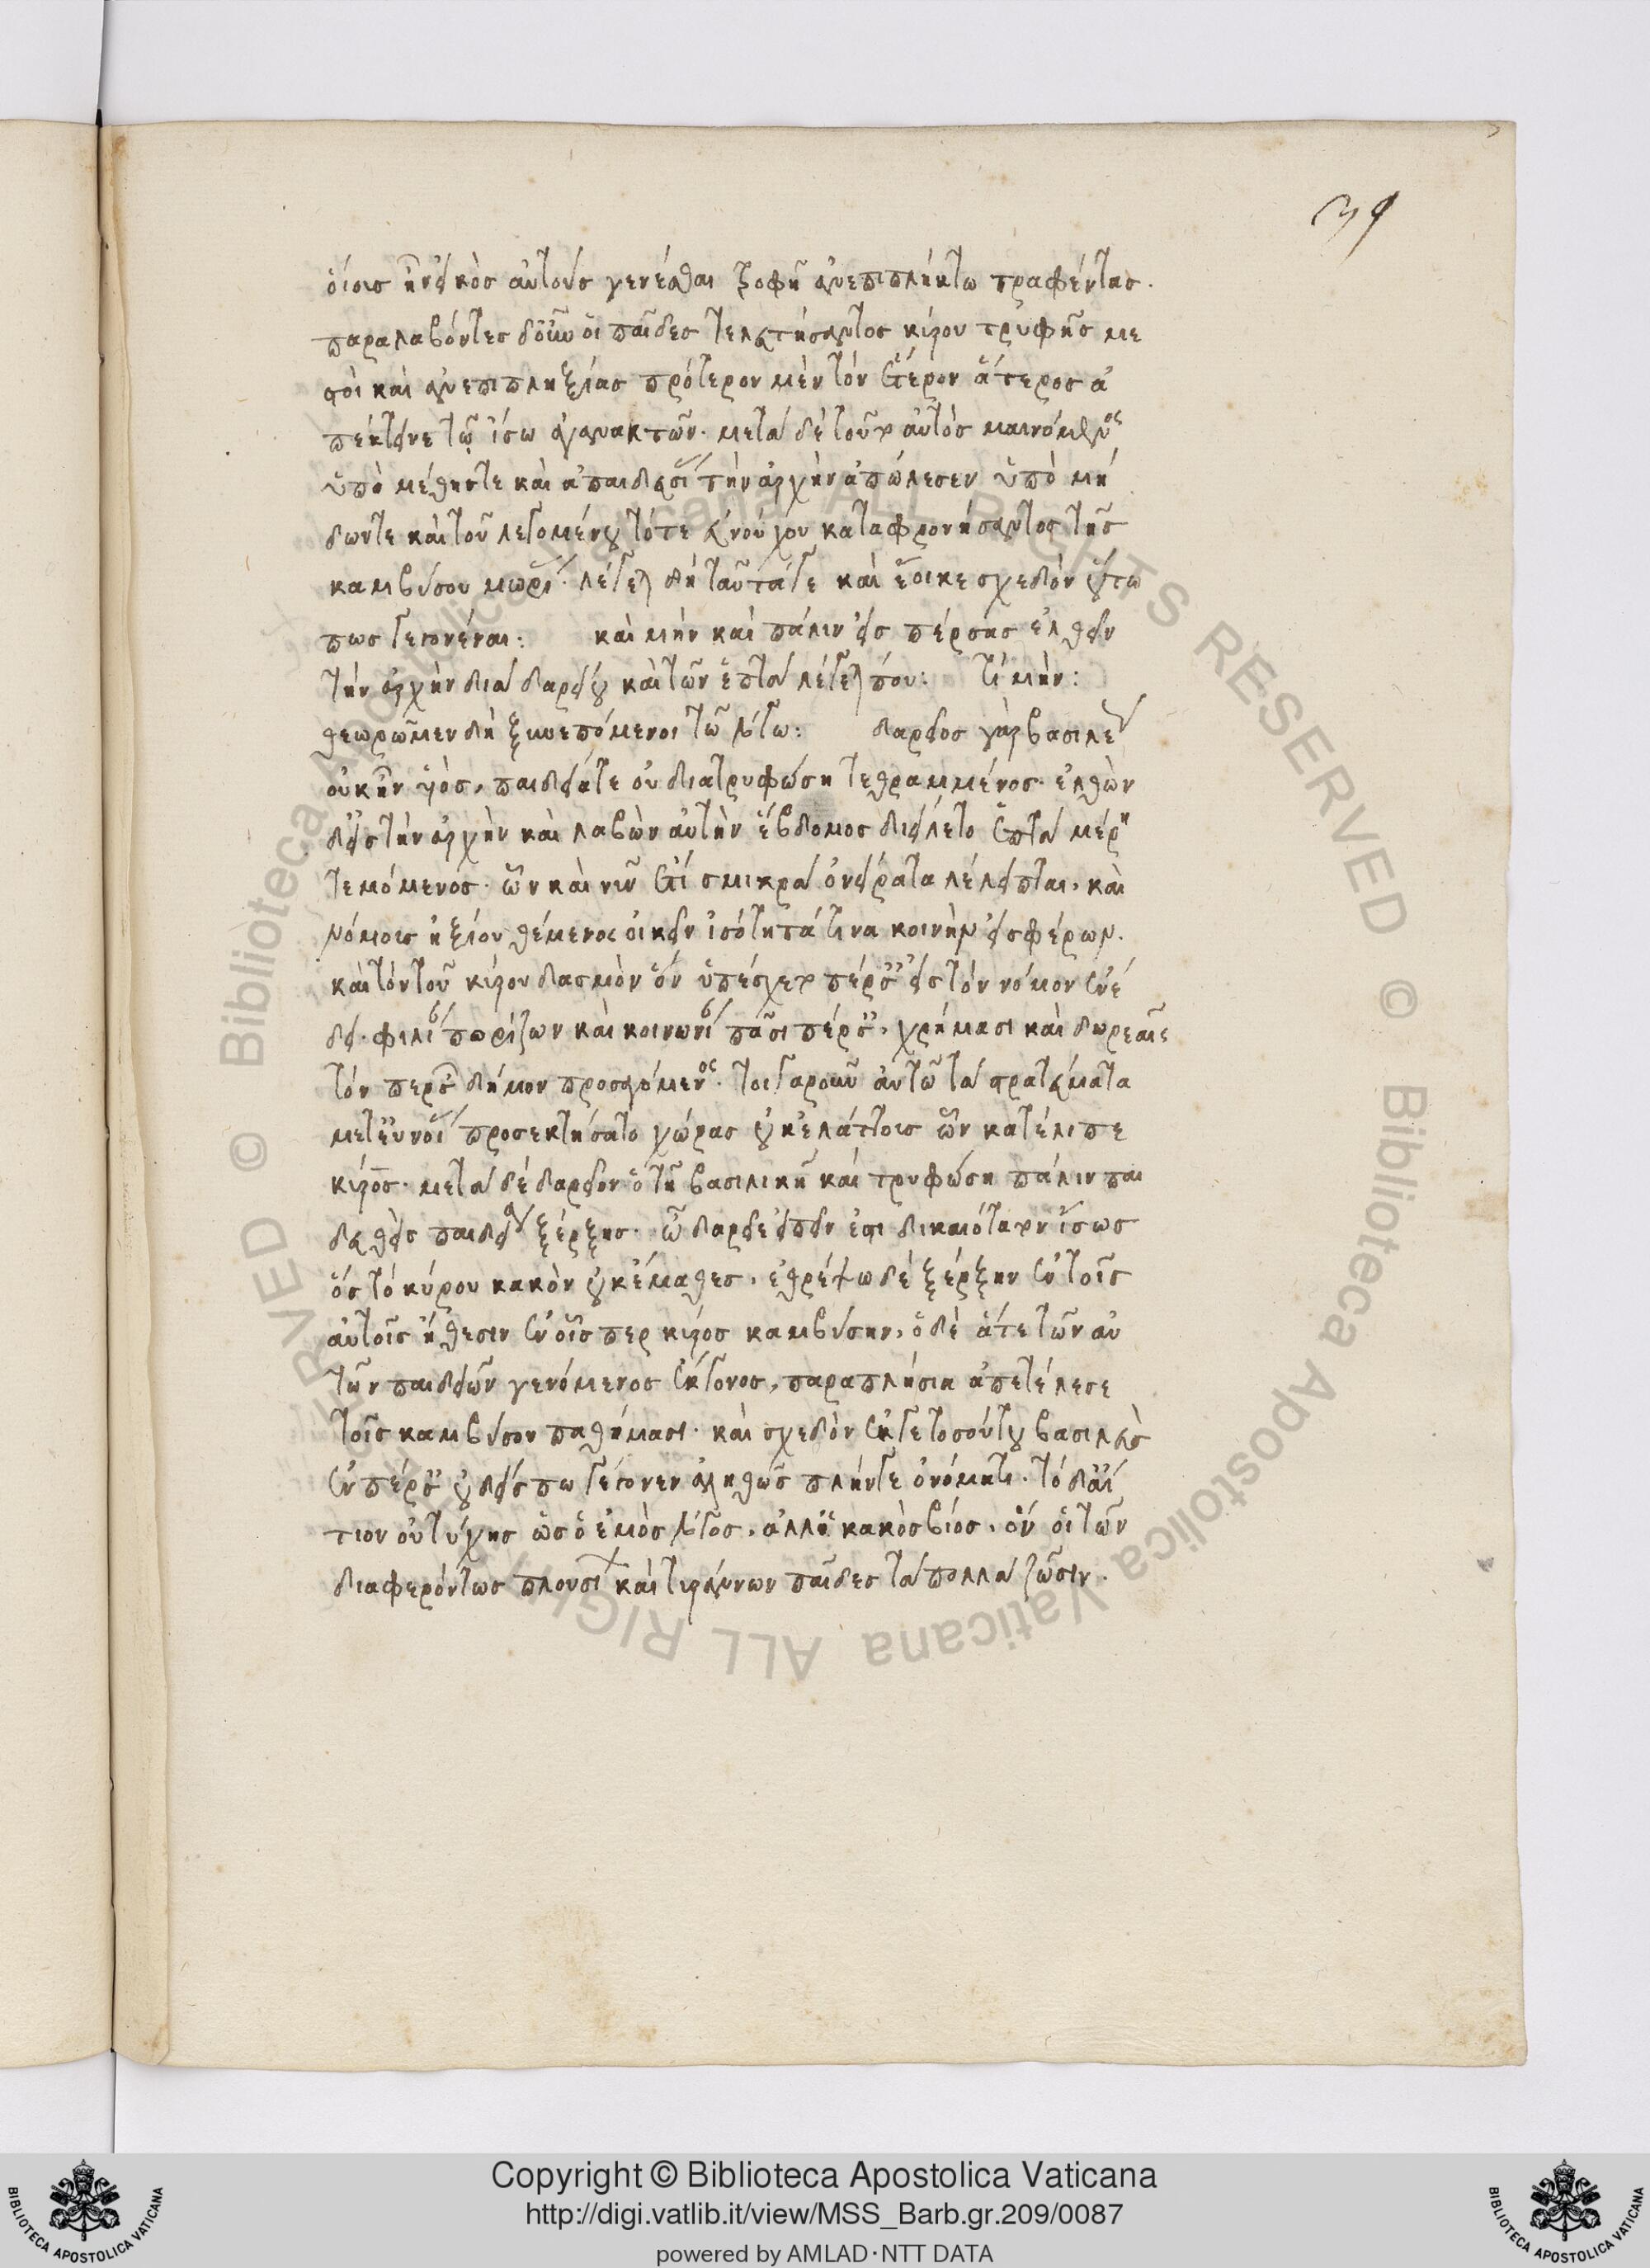 39
οἵοις ἦν εἰκὸς αὐτοὺς γενέσθαι τροφῇ ἀνεπιπλήκτω τραφέντας.
παραλαβόντες δ' οὖν οἱ παῖδες τελευτήσαντος κύρου τρυφῆς με
στοὶ καὶ ἀνεπιπληξίας πρότερον μὲν τὸν ἕτερον ἅτερος ἀ
πέκτεινε τῷ ἴσω ἀγανακτῶν. μετὰ δὲ τοῦτο αὐτὸς μαινόμενος
ὑπὸ μέθης τε καὶ ἀπαιδευσίας τὴν ἀρχὴν ἀπώλεσεν ὑπὸ μή
δων τε καὶ τοῦ λεγομένου τότε εὐνούχου καταφρονήσαντος τῆς
καμβύσου μωρίας. λέγεται δὴ ταῦτά γε καὶ ἔοικε σχεδὸν οὕτω
πως γεγονέναι: καὶ μὴν καὶ πάλιν εἰς πέρσας ἐλθεῖν
τὴν ἀρχὴν διὰ δαρείου καὶ τῶν ἑπτὰ λέγεταί που: τί μήν:
θεωρῶμεν δὴ ξυνεπόμενοι τῶ λόγω: δαρεῖος γὰρ βασιλέως
οὐκ ἦν υἱός, παιδεία τε οὐ διατρυφώση τεθραμμένος. ἐλθὼν
δ' εἰς τὴν ἀρχὴν καὶ λαβὼν αὐτὴν ἕβδομος διείλετο ἑπτὰ μέρη
τεμόμενος. ὧν καὶ νῦν ἔτι σμικρὰ ὀνείρατα λέλειπται, καὶ
νόμοις ἠξίου θέμενος οἰκεῖν ἰσότητά τινα κοινὴν εἰσφέρων.
καὶ τὸν τοῦ κύρου δασμὸν ὃν ὑπέσχετο πέρσαις εἰς τὸν νόμον ἐνέ
δει. φιλίαν πορίζων καὶ κοινωνίαν πᾶσι πέρσαις, χρήμασι καὶ δωρεαῖς
τὸν περσῶν δῆμον προσαγόμενος. τοιγαροῦν αὐτῶ τὰ στρατεύματα
μετ' εὐνοίας προσεκτήσατο χώρας οὐκ ἐλάττους ὧν κατέλιπε
κύρος. μετὰ δὲ δαρεῖον ὁ τῆ βασιλικῆ καὶ τρυφώση πάλιν παι
δευθεὶς παιδείαν ξέρξης. ὦ δαρεῖε εἰπεῖν ἐστι δικαιότατον ἴσως
ὃς τὸ κύρου κακὸν οὐκ ἔμαθες, ἐθρέψω δὲ ξέρξην ἐν τοῖς
αὐτοῖς ἤθεσιν ἐν οἷς περ κύρος καμβύσην, ὁ δὲ ἅτε τῶν αὐ
τῶν παιδειῶν γενόμενος ἔκγονος, παραπλήσια ἀπετέλεσε
τοῖς καμβύσου παθήμασι. καὶ σχεδὸν ἔκ γε τοσούτου βασιλεὺς
ἐν πέρσαις οὐδείς πω γέγονεν ἀληθῶς πλήν γε ὀνόματι. τὸ δ' αἴ
τιον οὐ τύχης ὡς ὁ ἐμὸς λόγος, ἀλλ' ὁ κακὸς βίος, ὃν οἱ τῶν
διαφερόντως πλουσίων καὶ τυράννων παῖδες τὰ πολλὰ ζῶσιν.
© Biblioteca Apostolica Vaticana ALL RIGHTS RESERVED © Biblioteca Apostolica Vaticana ALL RIGHTS RESERVED
Copyright © Biblioteca Apostolica Vaticana
http://digi.vatlib.it/view/MSS_Barb.gr.209/0087
powered by AMLAD·NTT DATA
BIBLIOTECA APOSTOLICA VATICANA
BIBLIOTECA APOSTOLICA VATICANA